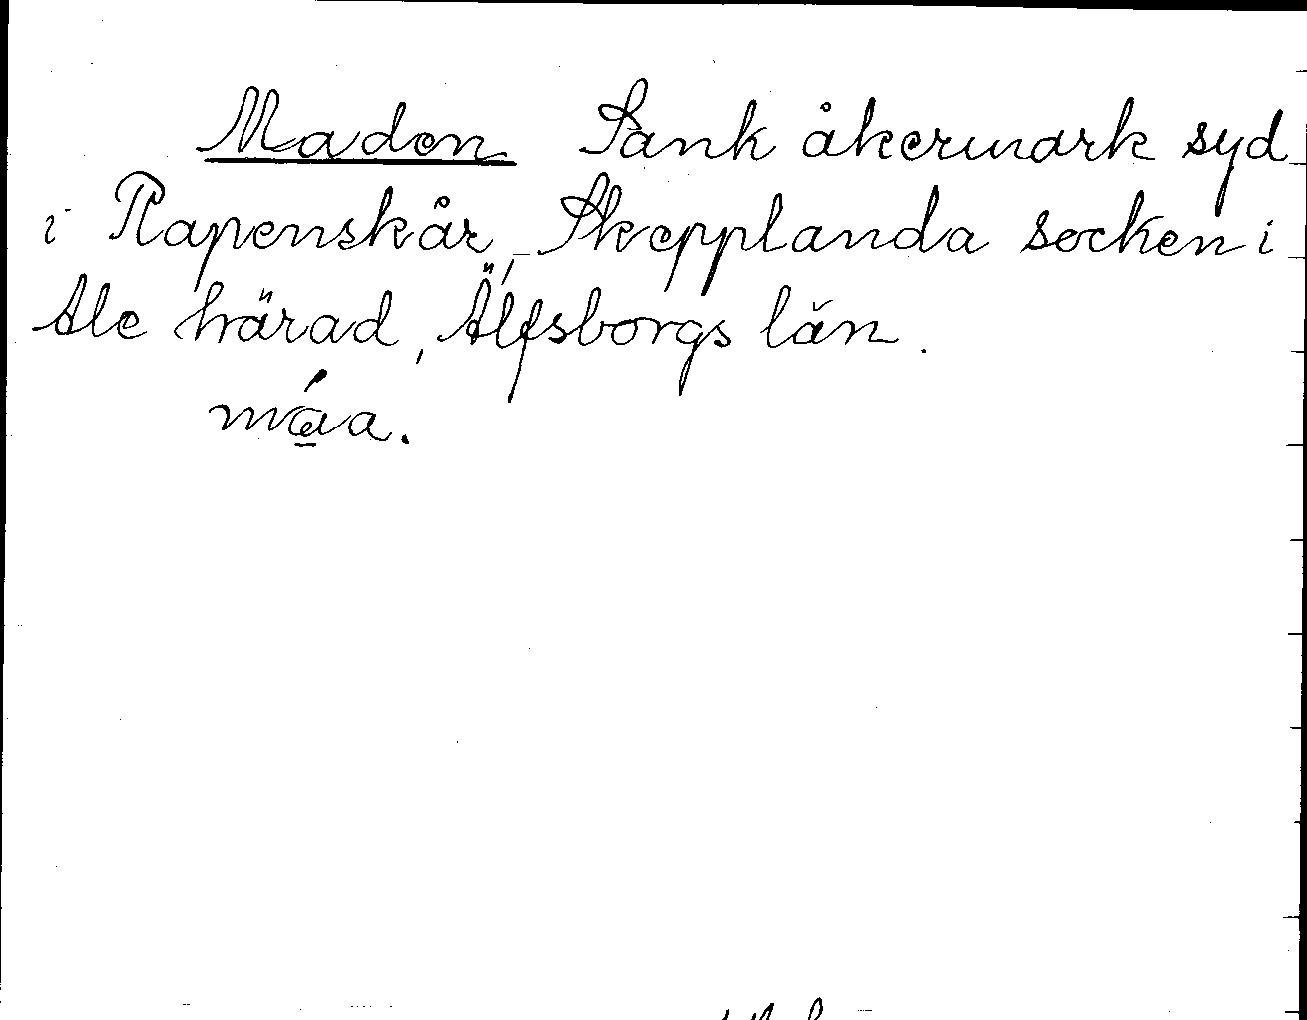 Maden Sank åkermark syd
i Rapenskår, Skepplanda socken i
Ale härad, Älfsborgs län.
máa.